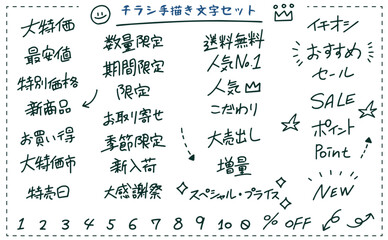 チラシ手描き文字セット
大特価
最安値
特別価格
新商品
お買い得
大特価市
特売日
数量限定
期間限定
限定
お取り寄せ
季節限定
新入荷
大感謝祭
送料無料
人気No.1
人気
こだわり
大売出し
増量
スペシャル・プライス
イチオシ
おすすめ
セール
SALE
ポイント
Point
NEW
1 2 3 4 5 6 7 8 9 10 0 % OFF